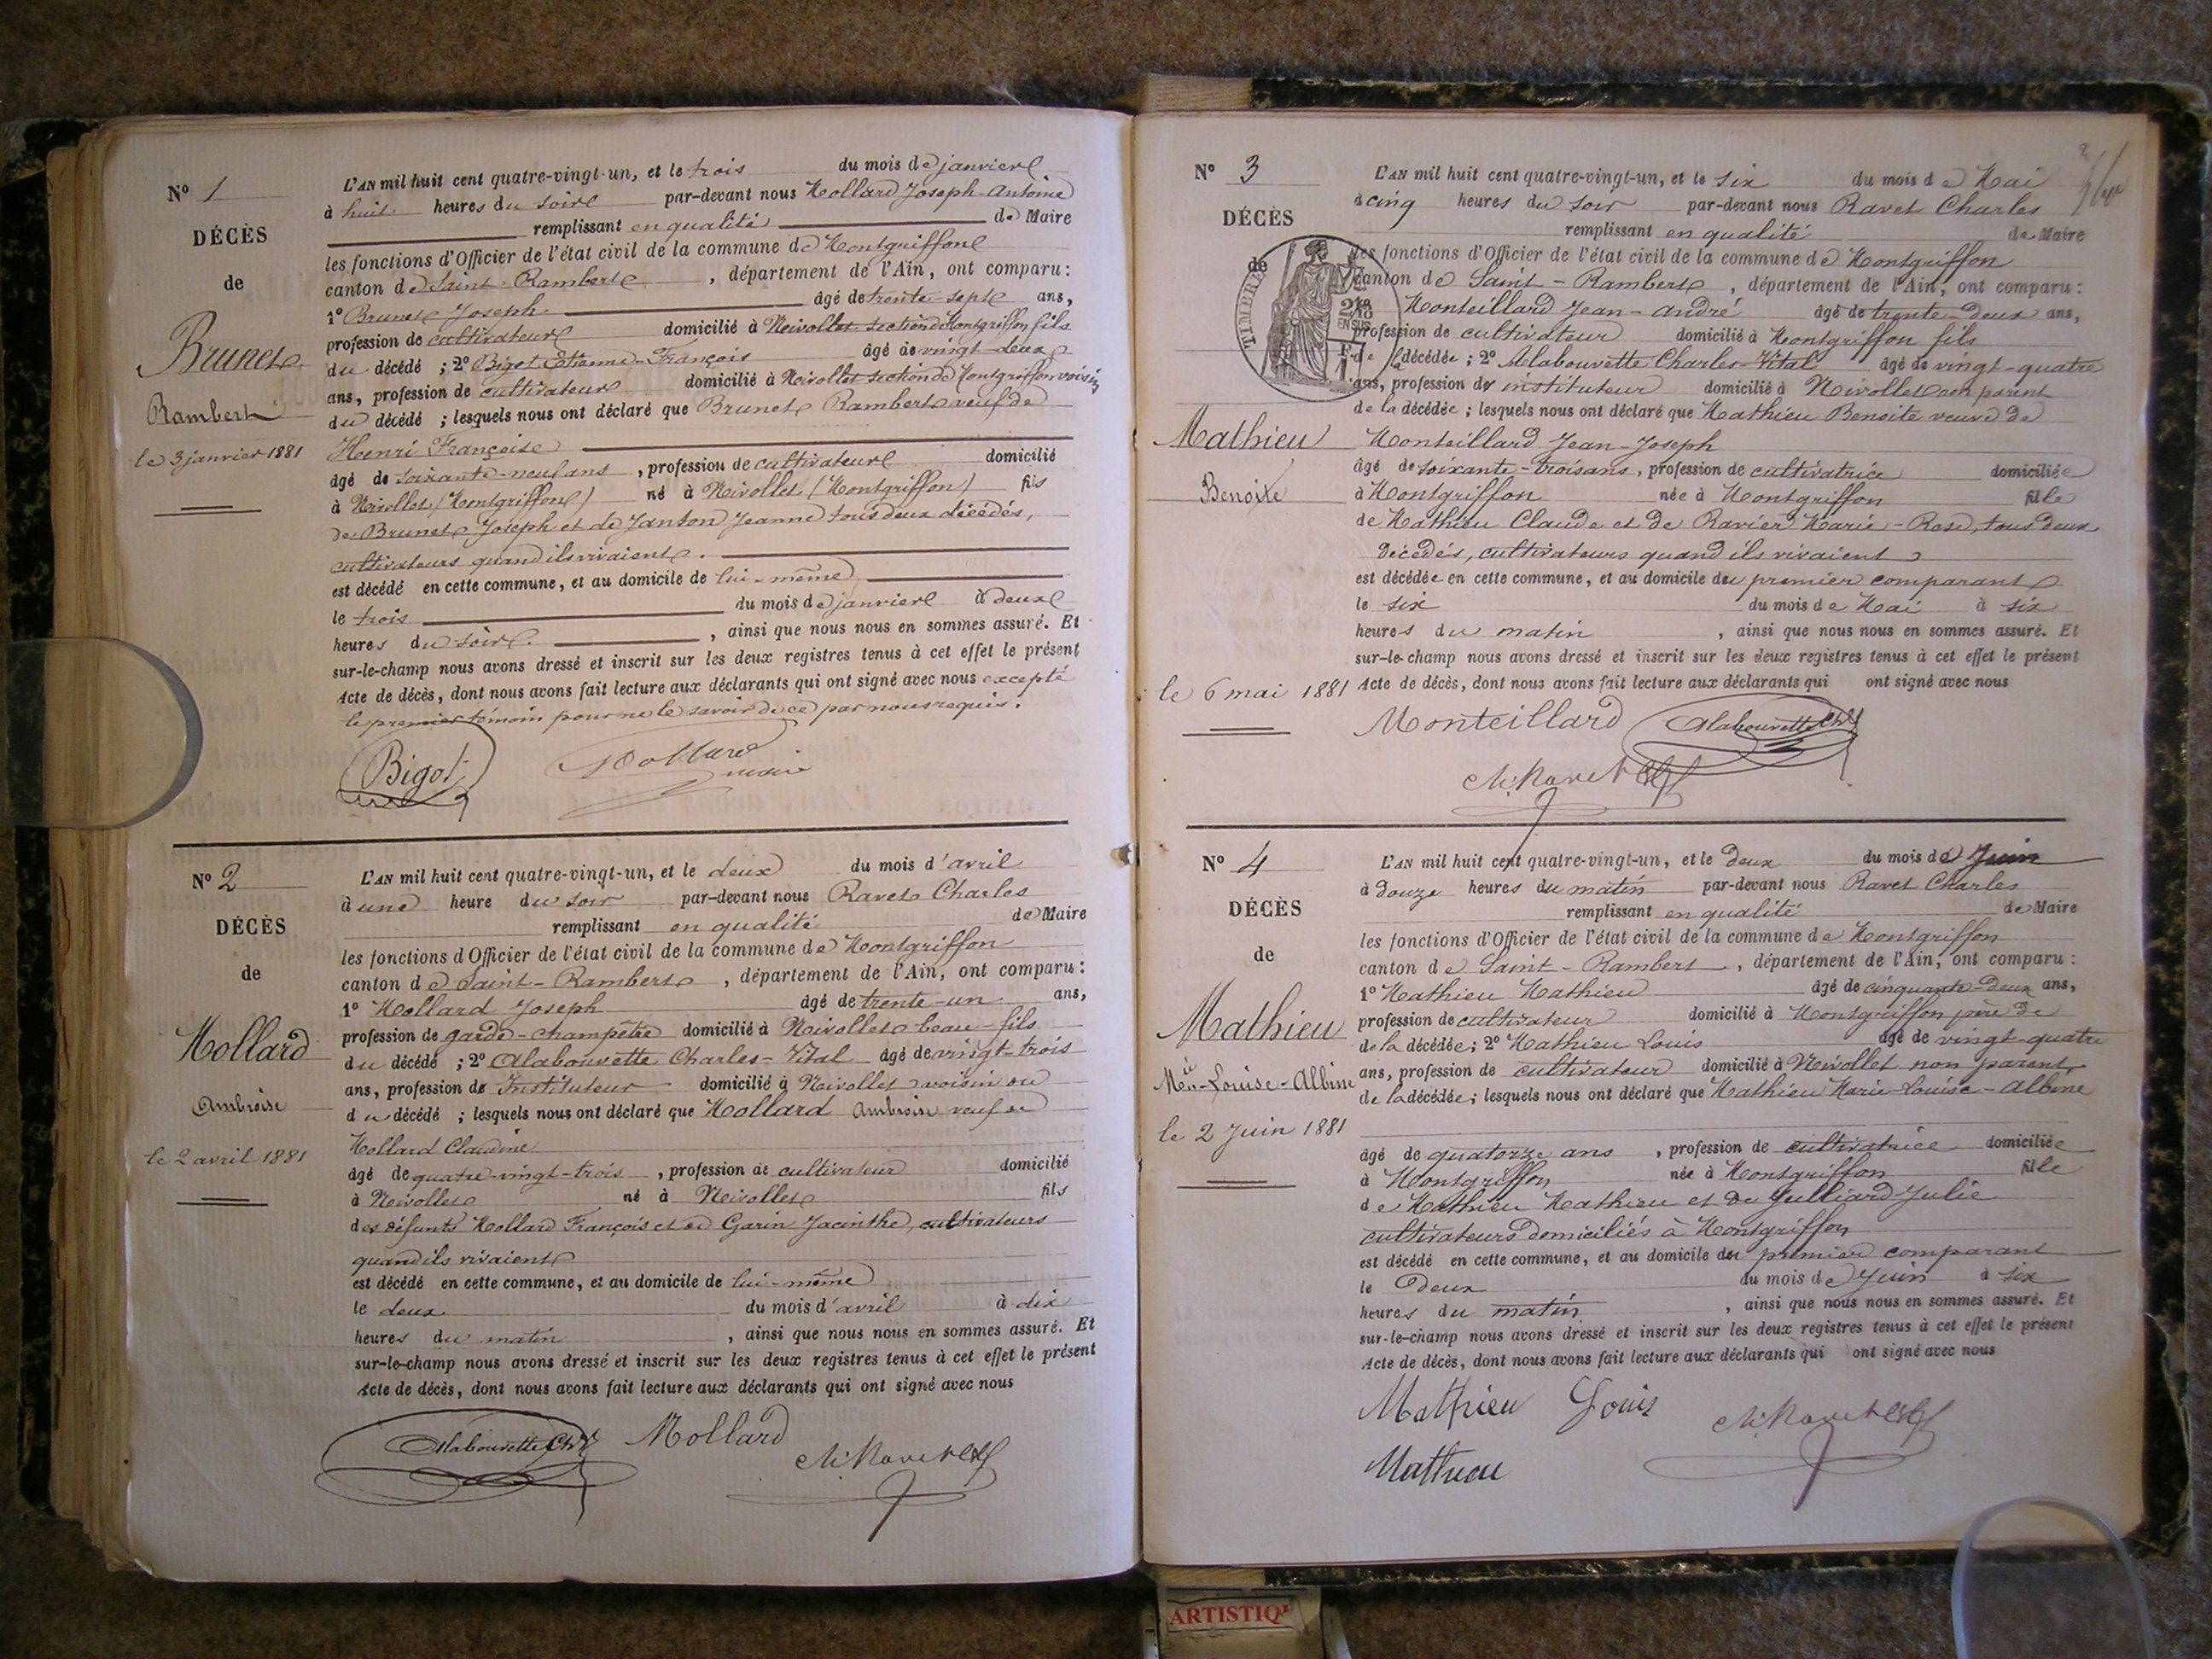 N° 1
DÉCÈS
de
Brunet
Rambert
le 3 janvier 1881
L'AN mil huit cent quatre-vingt-un, et le trois du mois de janvier
à huit heures du soir par-devant nous Mollard Joseph-Antoine
remplissant en qualité de Maire
les fonctions d'Officier de l'état civil de la commune de Montgriffon
canton de Saint-Rambert, département de l'Ain, ont comparu :
1° Brunet Joseph âgé de trente-sept ans,
profession de cultivateur domicilié à Nivollet section de Montgriffon fils
du décédé ; 2° Bigot Etienne-François âgé de vingt-deux
ans, profession de cultivateur domicilié à Nivollet section de Montgriffon voisin
du décédé ; lesquels nous ont déclaré que Brunet Rambert veuf de
Henri Françoise
âgé de soixante-neuf ans, profession de cultivateur domicilié
à Nivollet (Montgriffon) né à Nivollet (Montgriffon) fils
de Brunet Joseph et de Janton Jeanne tous deux décédés,
cultivateurs quand ils vivaient.
est décédé en cette commune, et au domicile de lui-même
le trois du mois de janvier à deux
heures du soir, ainsi que nous nous en sommes assuré. Et
sur-le-champ nous avons dressé et inscrit sur les deux registres tenus à cet effet le présent
Acte de décès, dont nous avons fait lecture aux déclarants qui ont signé avec nous excepté
le premier témoin pour ne le savoir de ce par nous requis.
Bigot Mollard
maire
N° 2
DÉCÈS
de
Mollard
Ambroise
le 2 avril 1881
L'AN mil huit cent quatre-vingt-un, et le deux du mois d'avril
à une heure du soir par-devant nous Ravet Charles
remplissant en qualité de Maire
les fonctions d'Officier de l'état civil de la commune de Montgriffon
canton de Saint-Rambert, département de l'Ain, ont comparu :
1° Mollard Joseph âgé de trente-un ans,
profession de garde-champêtre domicilié à Nivollet beau-fils
du décédé ; 2° Alabouvette Charles-Vital âgé de vingt-trois
ans, profession de Instituteur domicilié à Nivollet voisin
du décédé ; lesquels nous ont déclaré que Mollard Ambroise veuf de
Mollard Claudine
âgé de quatre-vingt-trois, profession de cultivateur domicilié
à Nivollet né à Nivollet fils
des défunts Mollard François et de Garin Jacinthe, cultivateurs
quand ils vivaient
est décédé en cette commune, et au domicile de lui-même
le deux du mois d'avril à dix
heures du matin, ainsi que nous nous en sommes assuré. Et
sur-le-champ nous avons dressé et inscrit sur les deux registres tenus à cet effet le présent
Acte de décès, dont nous avons fait lecture aux déclarants qui ont signé avec nous
Alabouvette Ch V Mollard Ravet
N° 3
DÉCÈS
de
TIMBRE
Mathieu
Benoite
le 6 mai 1881
L'AN mil huit cent quatre-vingt-un, et le six du mois de Mai
à cinq heures du soir par-devant nous Ravet Charles
remplissant en qualité de Maire
les fonctions d'Officier de l'état civil de la commune de Montgriffon
canton de Saint-Rambert, département de l'Ain, ont comparu :
Monteillard Jean-André âgé de trente-deux ans,
profession de cultivateur domicilié à Montgriffon fils
de la décédée ; 2° Alabouvette Charles-Vital âgé de vingt-quatre
ans, profession de instituteur domicilié à Nivollet non parent
de la décédée ; lesquels nous ont déclaré que Mathieu Benoite veuve de
Monteillard Jean-Joseph
âgé de soixante-trois ans, profession de cultivatrice domiciliée
à Montgriffon née à Montgriffon fille
de Mathieu Claude et de Ravier Marie-Rose, tous deux
décédés, cultivateurs quand ils vivaient
est décédée en cette commune, et au domicile du premier comparant
le six du mois de Mai à six
heures du matin, ainsi que nous nous en sommes assuré. Et
sur-le-champ nous avons dressé et inscrit sur les deux registres tenus à cet effet le présent
Acte de décès, dont nous avons fait lecture aux déclarants qui ont signé avec nous
Monteillard Alabouvette Ch V
Ravet
N° 4
DÉCÈS
de
Mathieu
Mie-Louise-Albine
le 2 Juin 1881
L'AN mil huit cent quatre-vingt-un, et le deux du mois de Juin
à douze heures du matin par-devant nous Ravet Charles
remplissant en qualité de Maire
les fonctions d'Officier de l'état civil de la commune de Montgriffon
canton de Saint-Rambert, département de l'Ain, ont comparu :
1° Mathieu Mathieu âgé de cinquante-deux ans,
profession de cultivateur domicilié à Montgriffon père de
de la décédée ; 2° Mathieu Louis âgé de vingt-quatre
ans, profession de cultivateur domicilié à Nivollet non parent
de la décédée ; lesquels nous ont déclaré que Mathieu Marie-Louise-Albine
âgé de quatorze ans, profession de cultivatrice domiciliée
à Montgriffon née à Montgriffon fille
de Mathieu Mathieu et de Julliard Julie
cultivateurs domiciliés à Montgriffon
est décédé en cette commune, et au domicile du premier comparant
le Deux du mois de Juin à six
heures du matin, ainsi que nous nous en sommes assuré. Et
sur-le-champ nous avons dressé et inscrit sur les deux registres tenus à cet effet le présent
Acte de décès, dont nous avons fait lecture aux déclarants qui ont signé avec nous
Mathieu Louis Ravet
Mathieu
ARTISTIQ